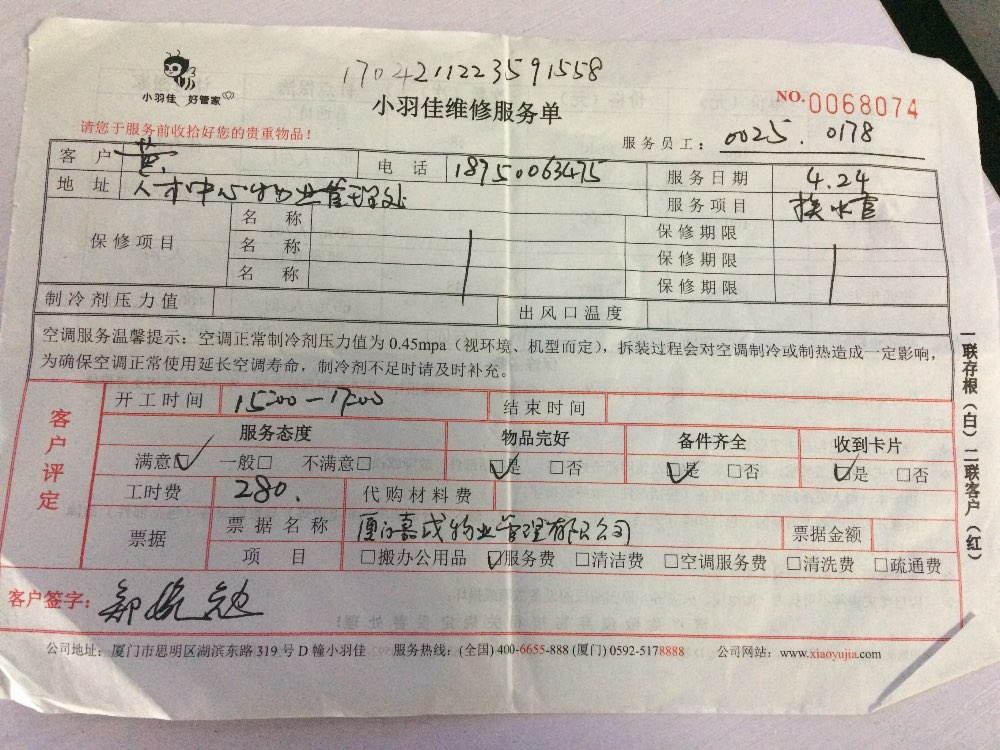 1704211223591558
小羽佳 好管家
小羽佳维修服务单
NO.0068074
请您于服务前收拾好您的贵重物品!
服务员工: 0025. 0178
客户 电话 18750063475 服务日期 4.24
地址 人才中心物业管理处 服务项目 换水管
保修项目 名称 保修期限
名称 保修期限
名称 保修期限
制冷剂压力值 出风口温度
空调服务温馨提示:空调正常制冷剂压力值为0.45mpa(视环境、机型而定),拆装过程会对空调制冷或制热造成一定影响,
为确保空调正常使用延长空调寿命,制冷剂不足时请及时补充。
客户评定
开工时间 15:00—17:00 结束时间
服务态度 物品完好 备件齐全 收到卡片
满意☑ 一般□ 不满意□ ☑是 □否 ☑是 □否 ☑是 □否
工时费 280. 代购材料费
票据 票据名称 厦门嘉成物业管理有限公司 票据金额
项目 □搬办公用品 ☑服务费 □清洁费 □空调服务费 □清洗费 □疏通费
客户签字:
公司地址:厦门市思明区湖滨东路319号D幢小羽佳 服务热线:(全国)400-6655-888 (厦门)0592-5178888 公司网站:www.xiaoyujia.com
一联存根(白)二联客户(红)